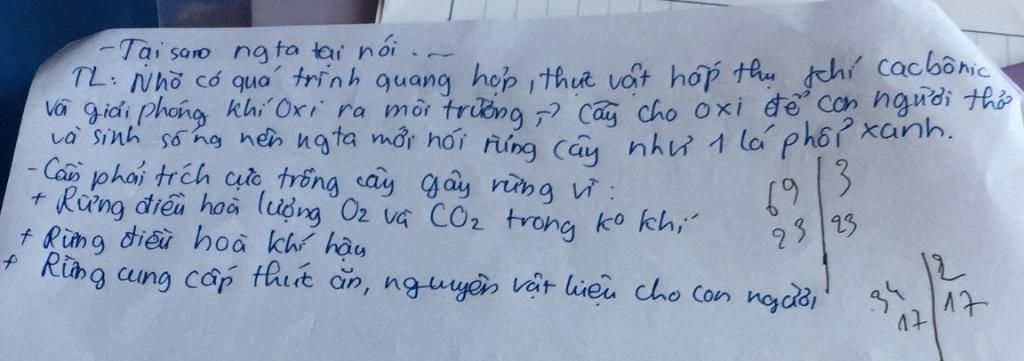 - Tại sao ngta lại nói . ~
TL: Nhờ có quá trình quang hợp, thực vật hấp thụ khí cacbônic
và giải phóng khí Oxi ra môi trường, → Cây cho oxi để con người thở
và sinh sống nên ngta mới nói rừng cây như 1 lá phổi xanh.
- Cần phải tích cực trồng cây gây rừng vì :
+ Rừng điều hoà lượng O2 và CO2 trong ko khí
+ Rừng điều hoà khí hậu
+ Rừng cung cấp thức ăn, nguyên vật liệu cho con người,
69 | 3
23 | 23
34 | 2
17 | 17